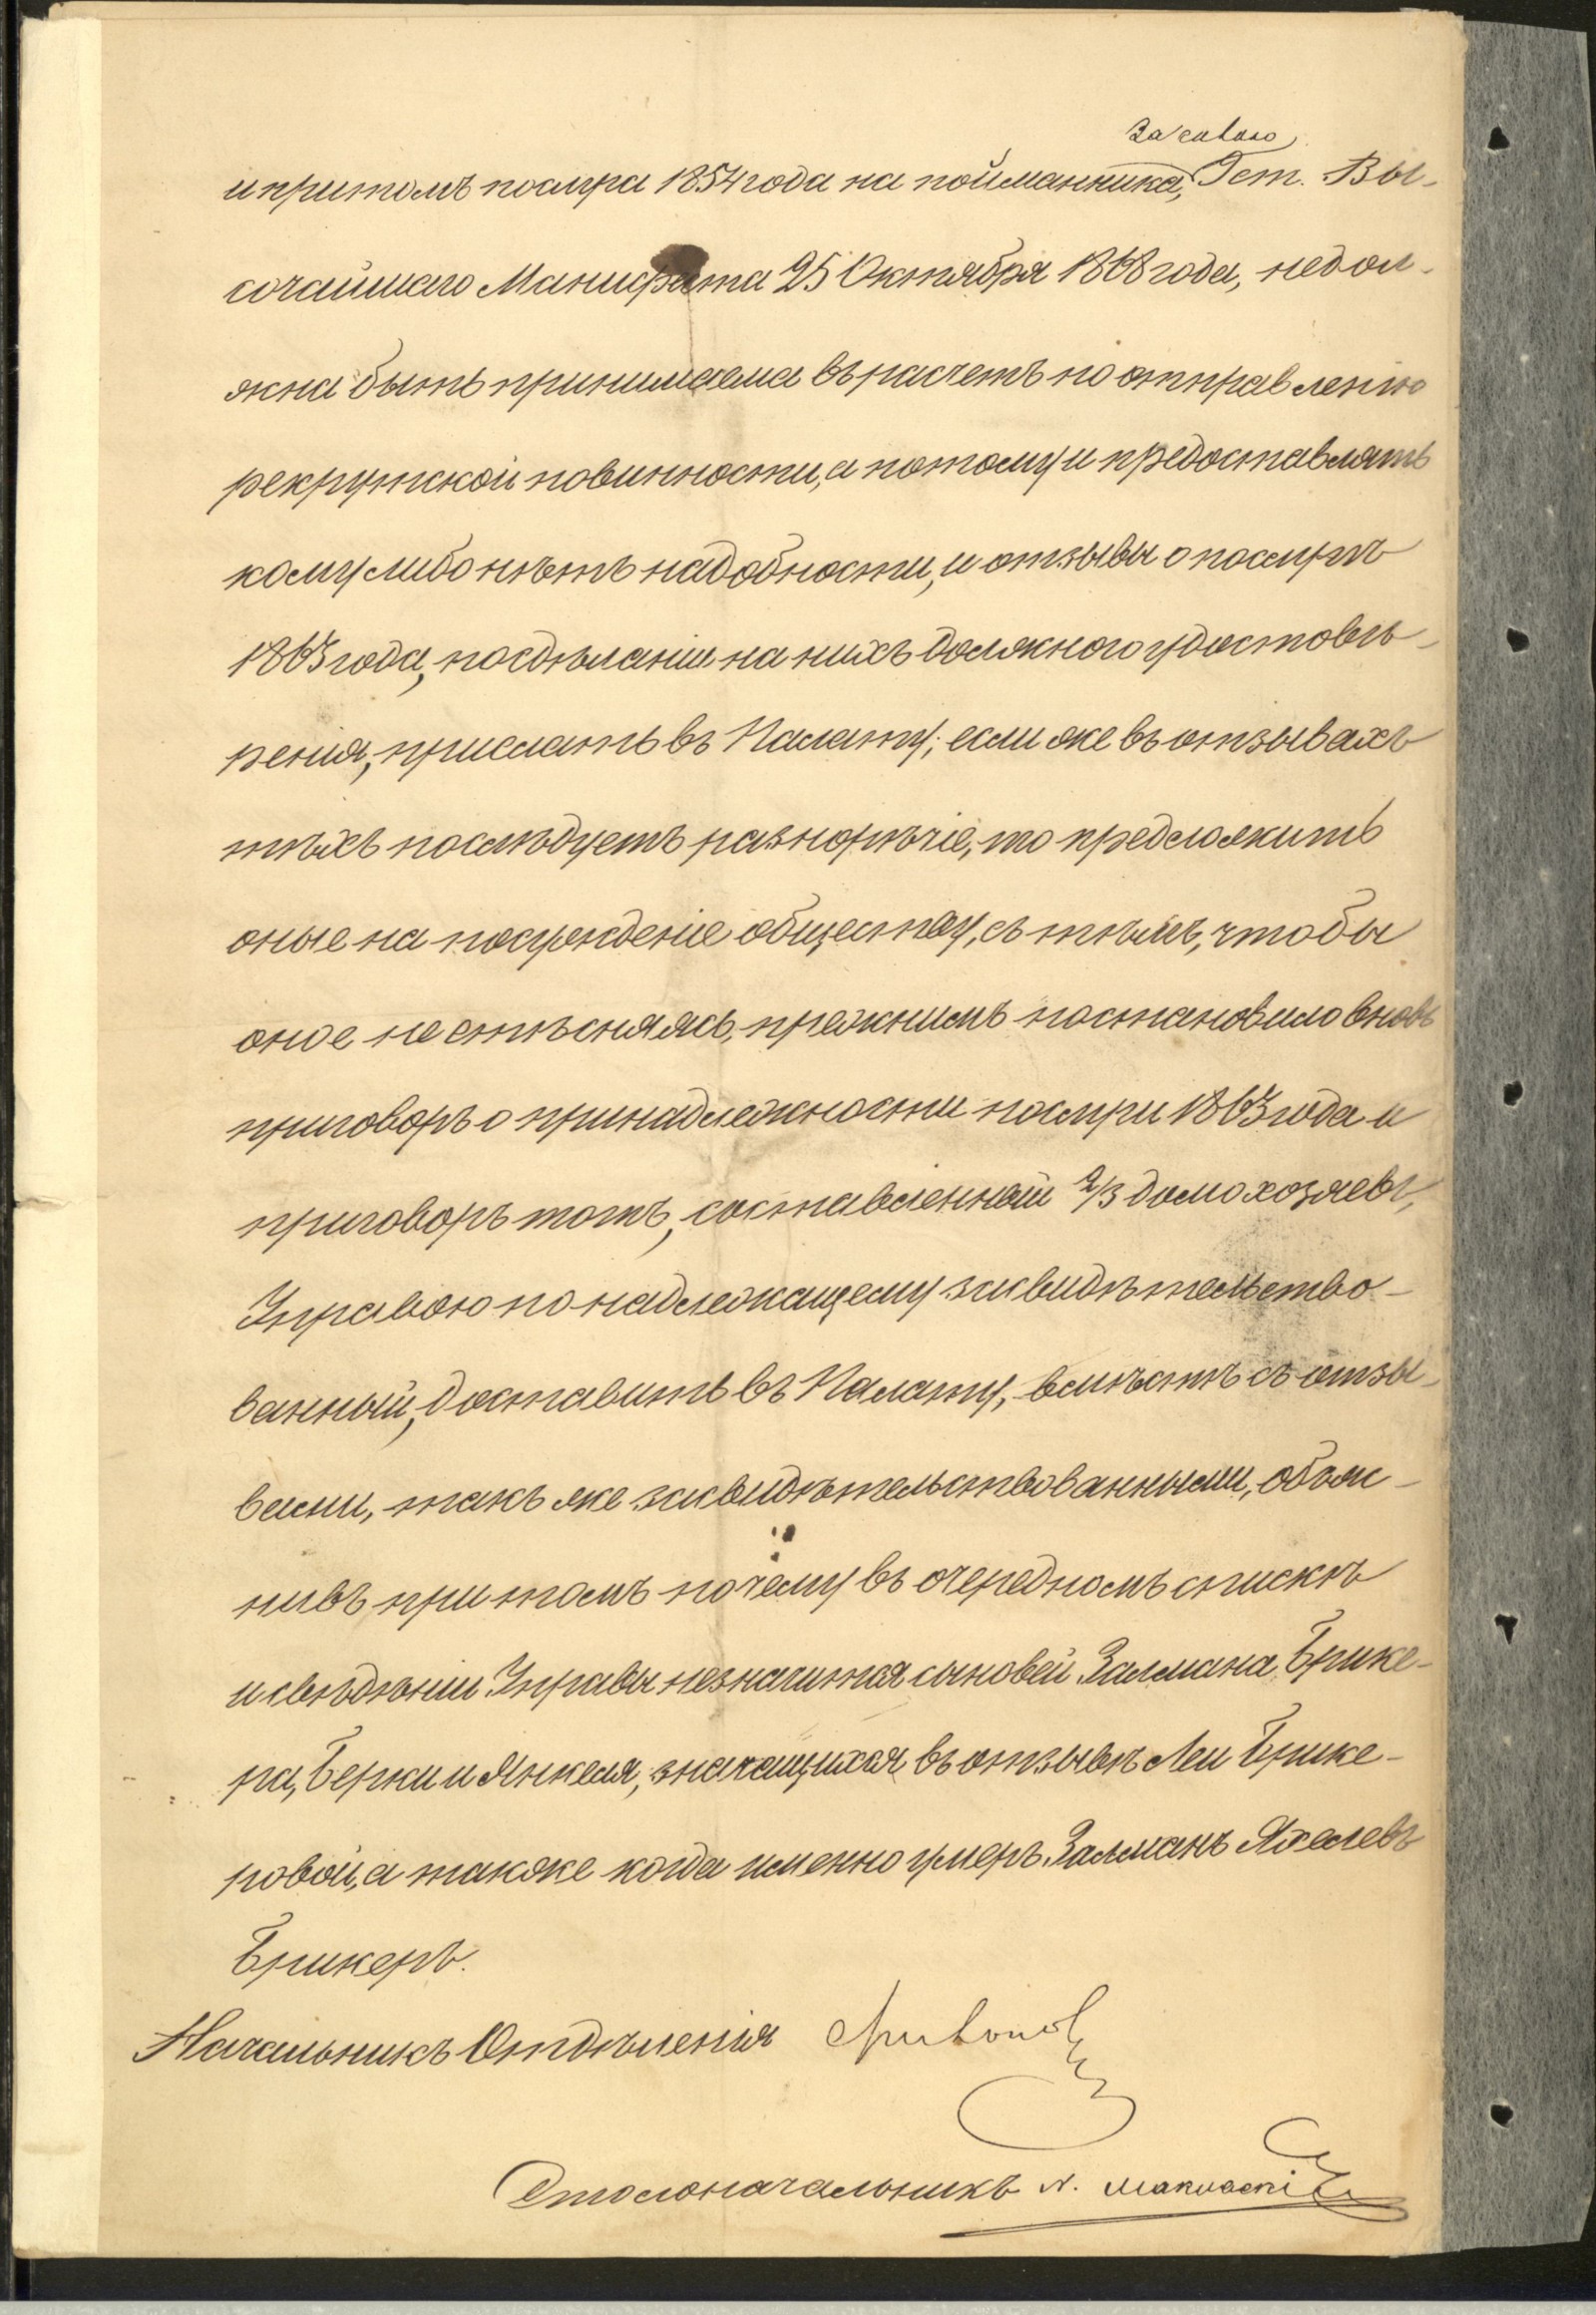 за силою
и притомъ посмра 1854 года на пойманника, Γ ст. Вы-
сочайшаго Манифеста 25 Октября 1868 года, недол-
жна быть принимаема въ расчетъ по отправленію
рекрутской повинности, а потому и предоставлять
кому либо нѣтъ надобности, и отзывы о
1863 года, по сдѣланіи на нихъ должнаго удостовѣ-
ренія, прислать въ Палату; если же въ отзывахъ
тѣхъ послѣдуетъ разнорѣчіе, то предложить
оные на посужденіе обществу, съ тѣмъ, чтобы
оное не стѣсняясь, прежнимъ постановило вновь
приговоръ о принадлежности 1863 года и
приговоръ тотъ, составленный 2/3 домохозяевъ,
Управою по надлежащему засвидѣтельство-
ванный, доставить въ Палату, вмѣстѣ съ отзы-
вами, такъ же засвидѣтельствованными, объяс-
нивъ при томъ почему въ очередномъ спискѣ
и свѣдѣніи Управы незначится сыновей Залмана Брике-
ра, Берки и Янкеля, значащихся въ отзывѣ Леи Брике-
ровой, а также когда именно умеръ Залманъ Яхелевъ
Брикеръ.
Начальникъ Отдѣленія
Столоначальникъ